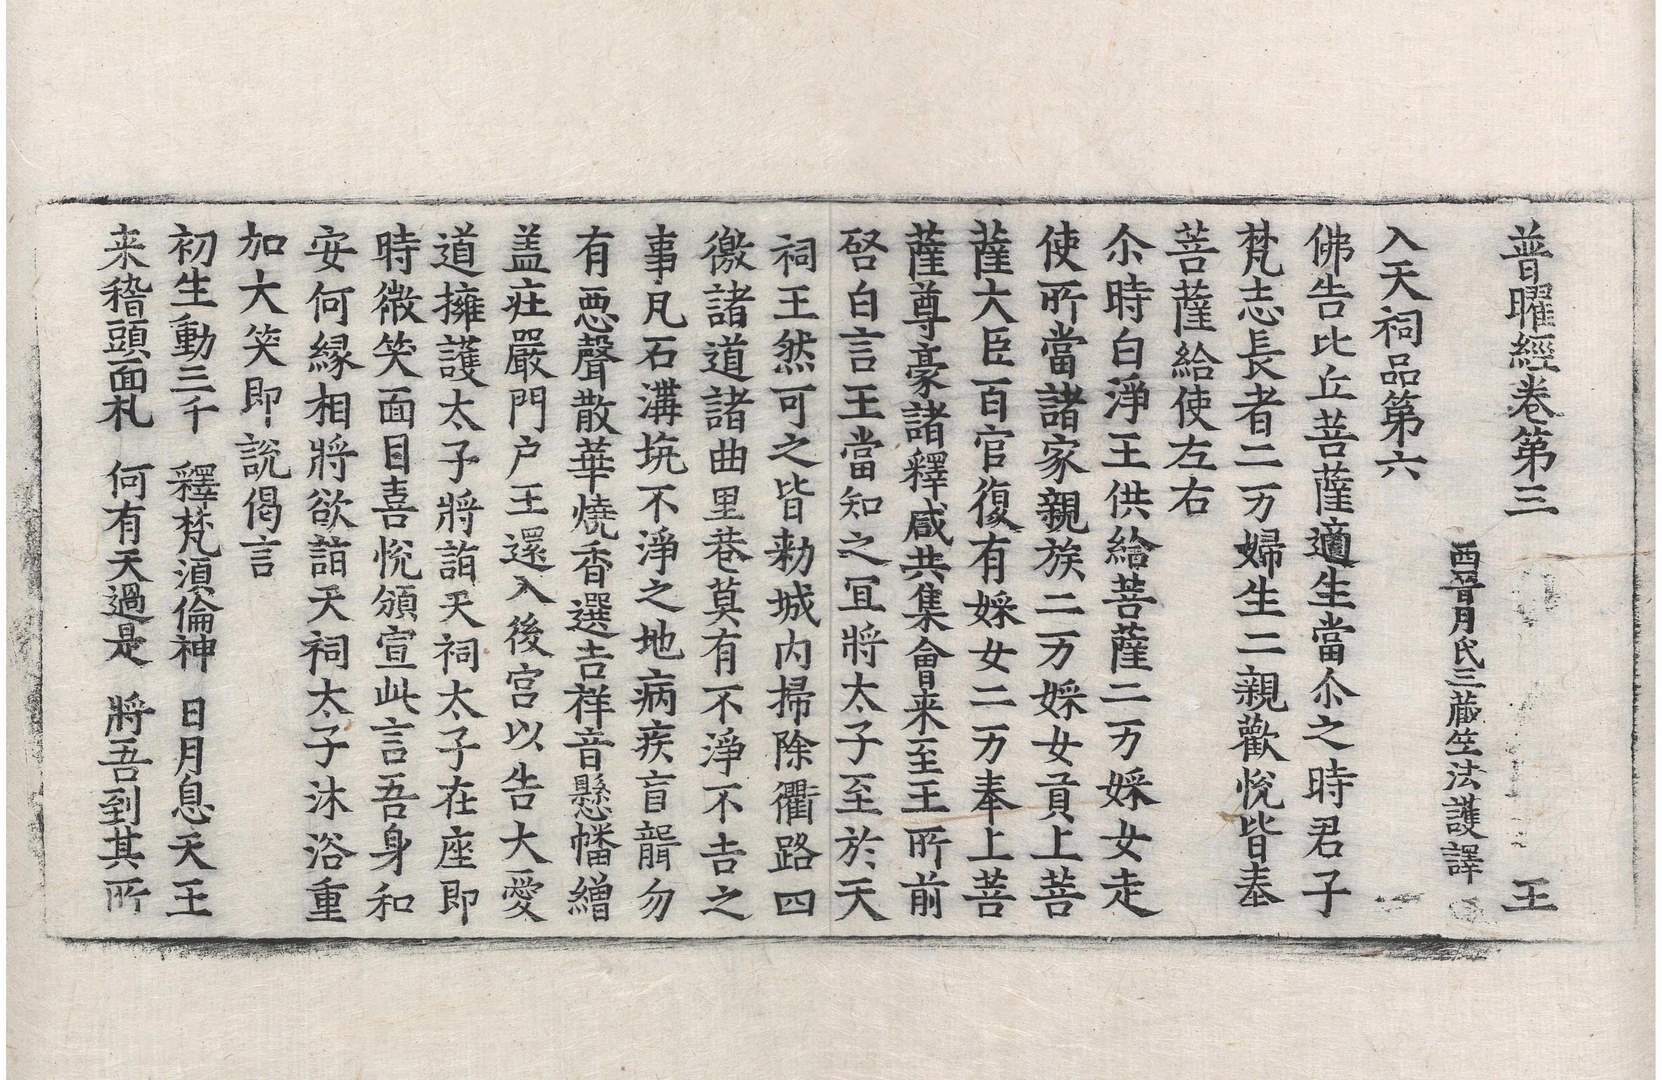 普曜經卷第三 王
西晉月氏三藏竺法護譯
入天祠品第六
佛告比丘菩薩適生當尒之時君子
梵志長者二万婦生二親歡悅皆奉
菩薩給使左右
尒時白淨王供給菩薩二万婇女走
使所當諸家親族二万婇女貢上菩
薩大臣百官復有婇女二万奉上菩
薩尊豪諸釋咸共集會来至王所前
啓白言王當知之冝將太子至於天
祠王然可之皆勑城内掃除衢路四
徼諸道諸曲里巷莫有不淨不吉之
事凡石溝坑不淨之地病疾盲聾勿
有惡聲散華燒香選吉祥音懸幡繒
盖疰嚴門户王還入後宫以告大愛
道擁護太子將詣天祠太子在座即
時微笑面目喜悅頒宣此言吾身和
安何縁相將欲詣天祠太子沐浴重
加大笑即說偈言
初生動三千 釋梵湏倫神 日月息天王
来稽頭面礼 何有天過是 將吾到其所